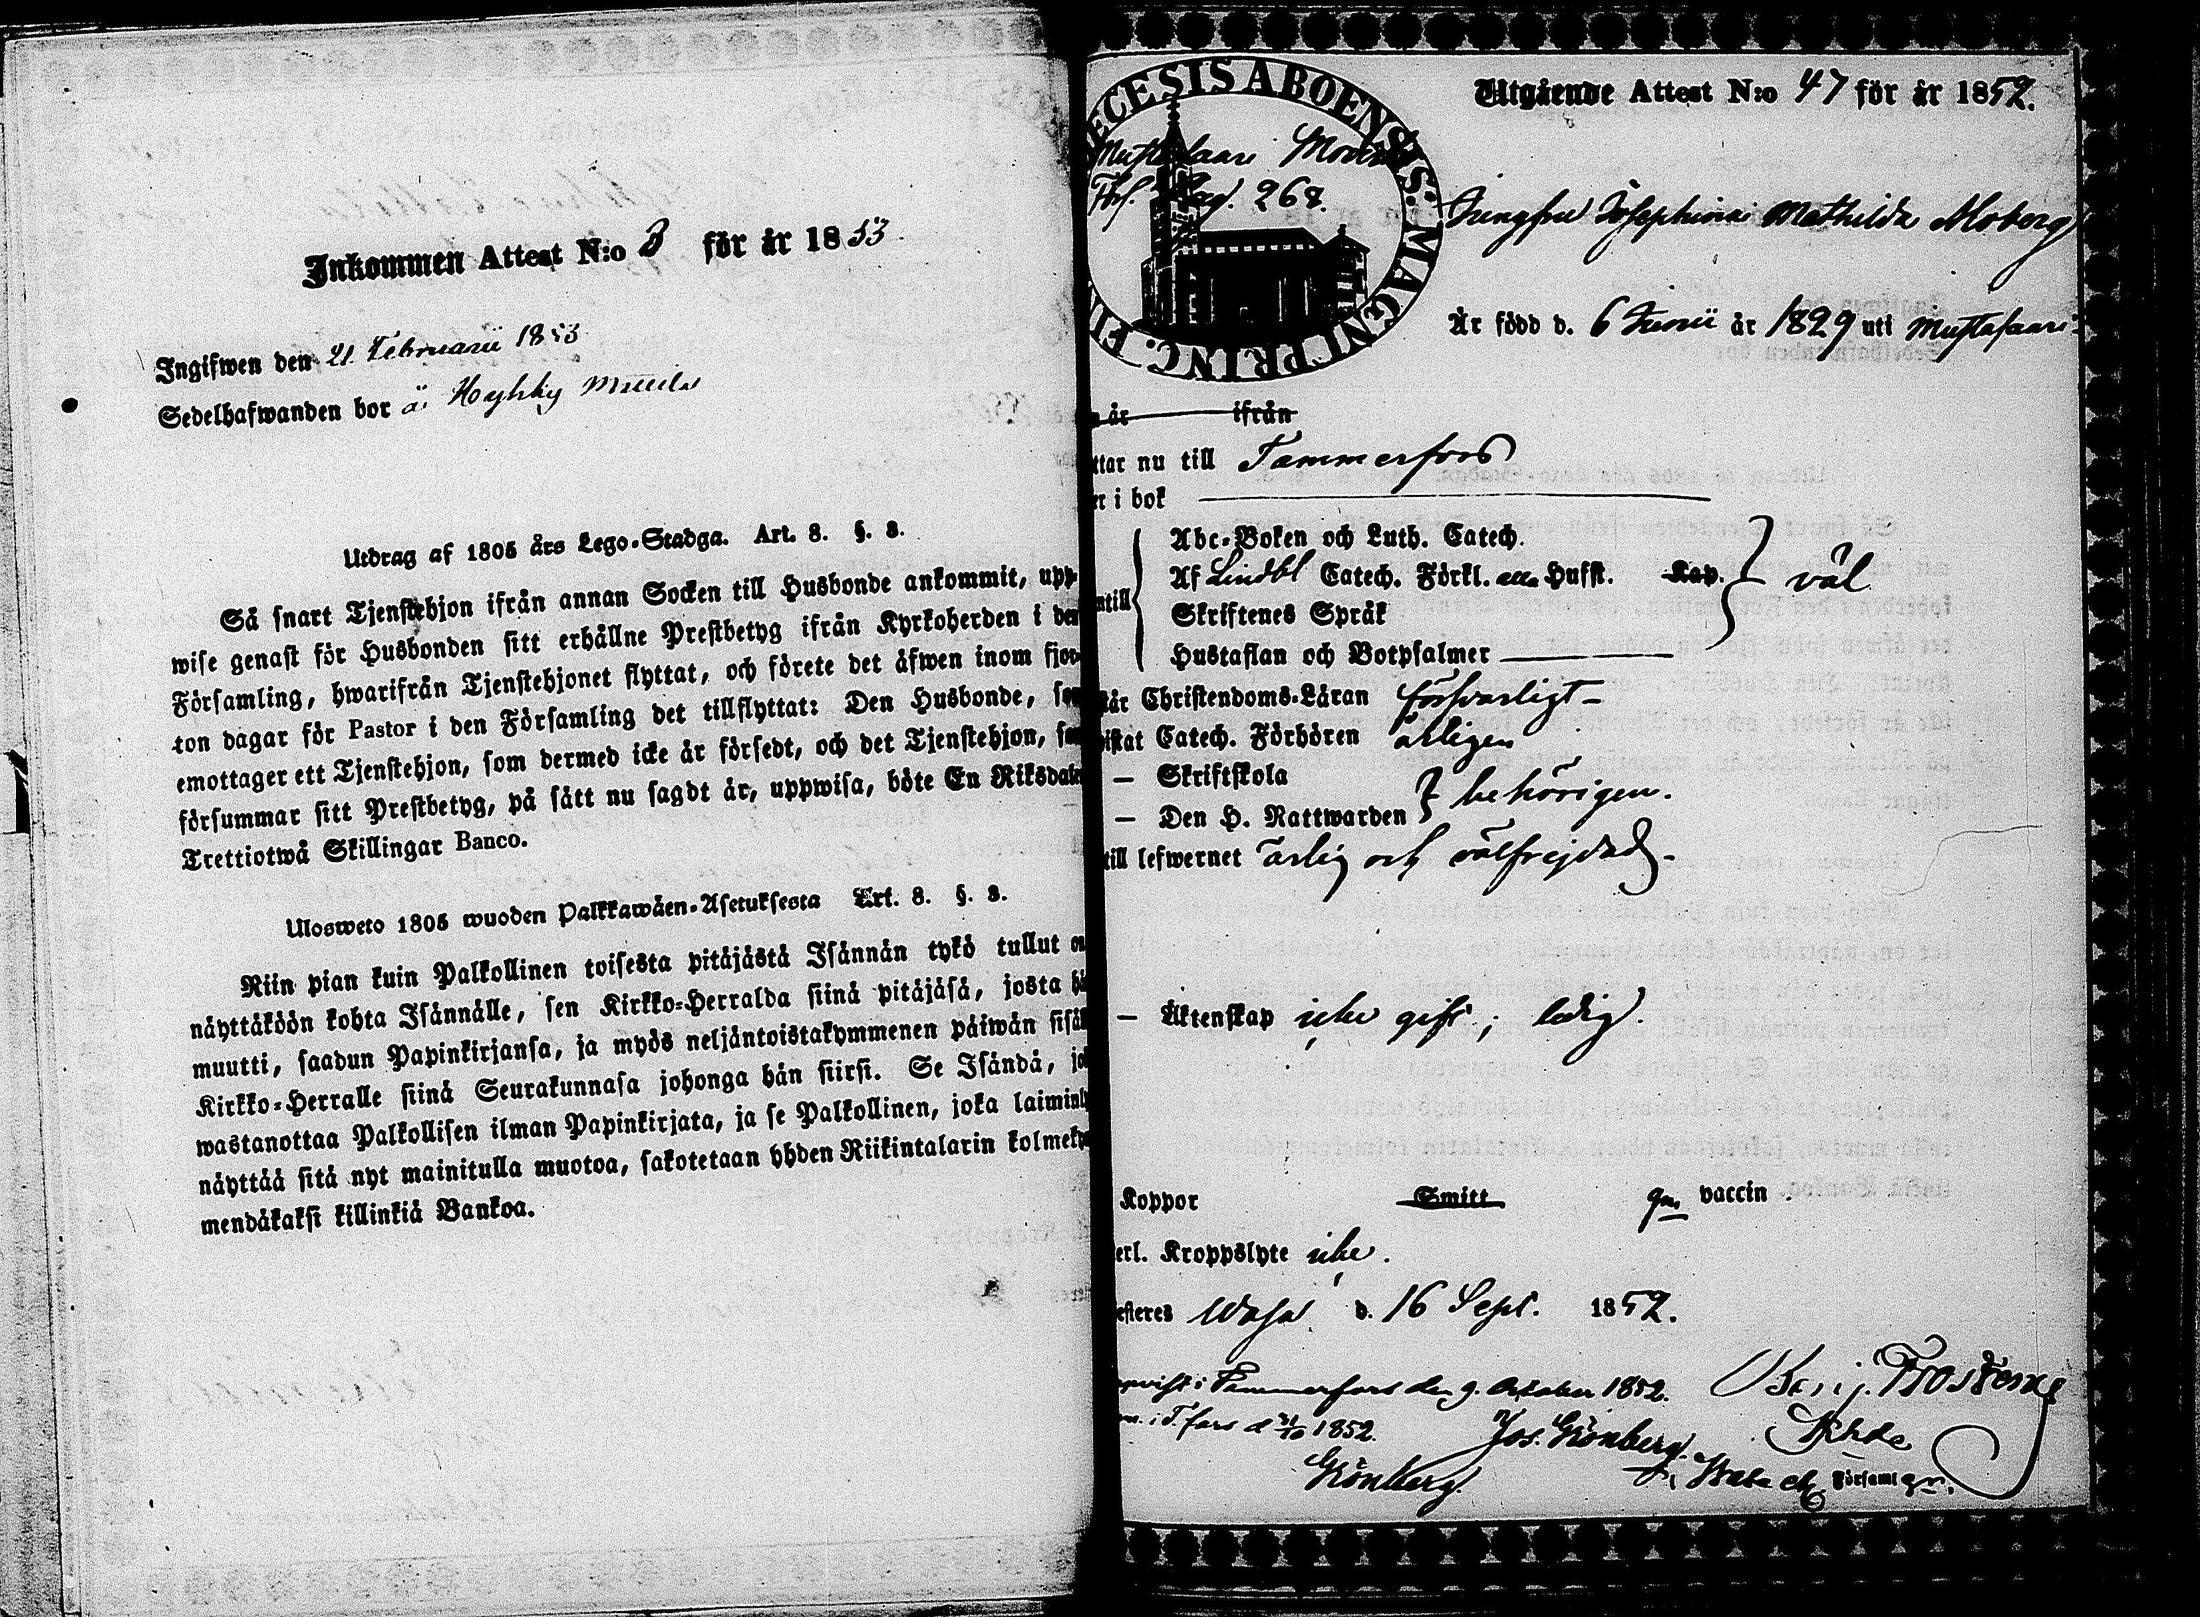 Inkommen Attest N:o 3 för år 1853
Ingifwen den 21 Februarii 1853
Sedelhafwanden bor å Hyhky
Utdrag af 1805 års Lego-Stadga. Art. 8. §. 3.
Så snart Tjenstehjon ifrån annan Socken till Husbonde ankommit, upp-
wise genast för Husbonden sitt erhållne Prestbetyg ifrån Kyrkoherden i den
Församling, hwarifrån Tjenstehjonet flyttat, och förete det äfwen inom fjor-
ton dagar för Pastor i den Församling det tillflyttat: Den Husbonde, som
emottager ett Tjenstehjon, som dermed icke är försedt, och det Tjenstehjon, som
försummar sitt Prestbetyg, på sätt nu sagdt är, uppwisa, böte En Riksdaler
Trettiotwå Skillingar Banco.
Ulosweto 1805 wuoden Palkkawäen-Asetuksesta Art. 8. §. 3.
Niin pian kuin Palkollinen toisesta pitäjästä Isännän tykö tullut on
näyttäköön kohta Isännälle, sen Kirkko-Herralda siinä pitäjäsä, josta hä
muutti, saadun Papinkirjansa, ja myös neljäntoistakymmenen päiwän sisäl
Kirkko-Herralle siinä Seurakunnasa johonga hän siirsi. Se Isändä, jo
wastanottaa Palkollisen ilman Papinkirjata, ja se Palkollinen, joka laiminly
näyttää sitä nyt mainitulla muotoa, sakotetaan yhden Riikintalarin kolmeky
mendäkaksi killinkiä Bankoa.
ECESIS ABOENSIS: MAGNI PRINC. FI
Utgående Attest N:o 47 för år 1852.
Mustasaari
Förs. Pag. 268.
Jungfru Josephina Mathilda Moberg
Är född d. 6 Junii år 1829 uti Mustasaari
år ifrån
ttar nu till Tammerfors
er i bok
Abc-Boken och Luth. Catech.
Af Lindbl Catech. Förkl. alla Hufst. Kap. väl
ntill Skriftenes Språk
Hustaflan och Botpsalmer
tår Christendoms-Läran försvarligt
istat Catech. Förhören årligen
— Skriftskola
— Den H. Nattwarden behörigen.
till lefwernet ärlig och välfrejdad.
— Äktenskap icke gift; ledig.
Koppor Smitt gm vaccin
erl. Kroppslyte icke.
esteres Wasa d. 16 Sept. 1852.
Tammerfors den 9 October 1852. Benj. Frosterus
i T.fors d 31/10 1852. Jos. Grönberg
Grönberg. Församl